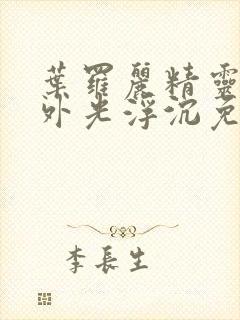 葉羅麗精靈
外光浮沉兔
李長生